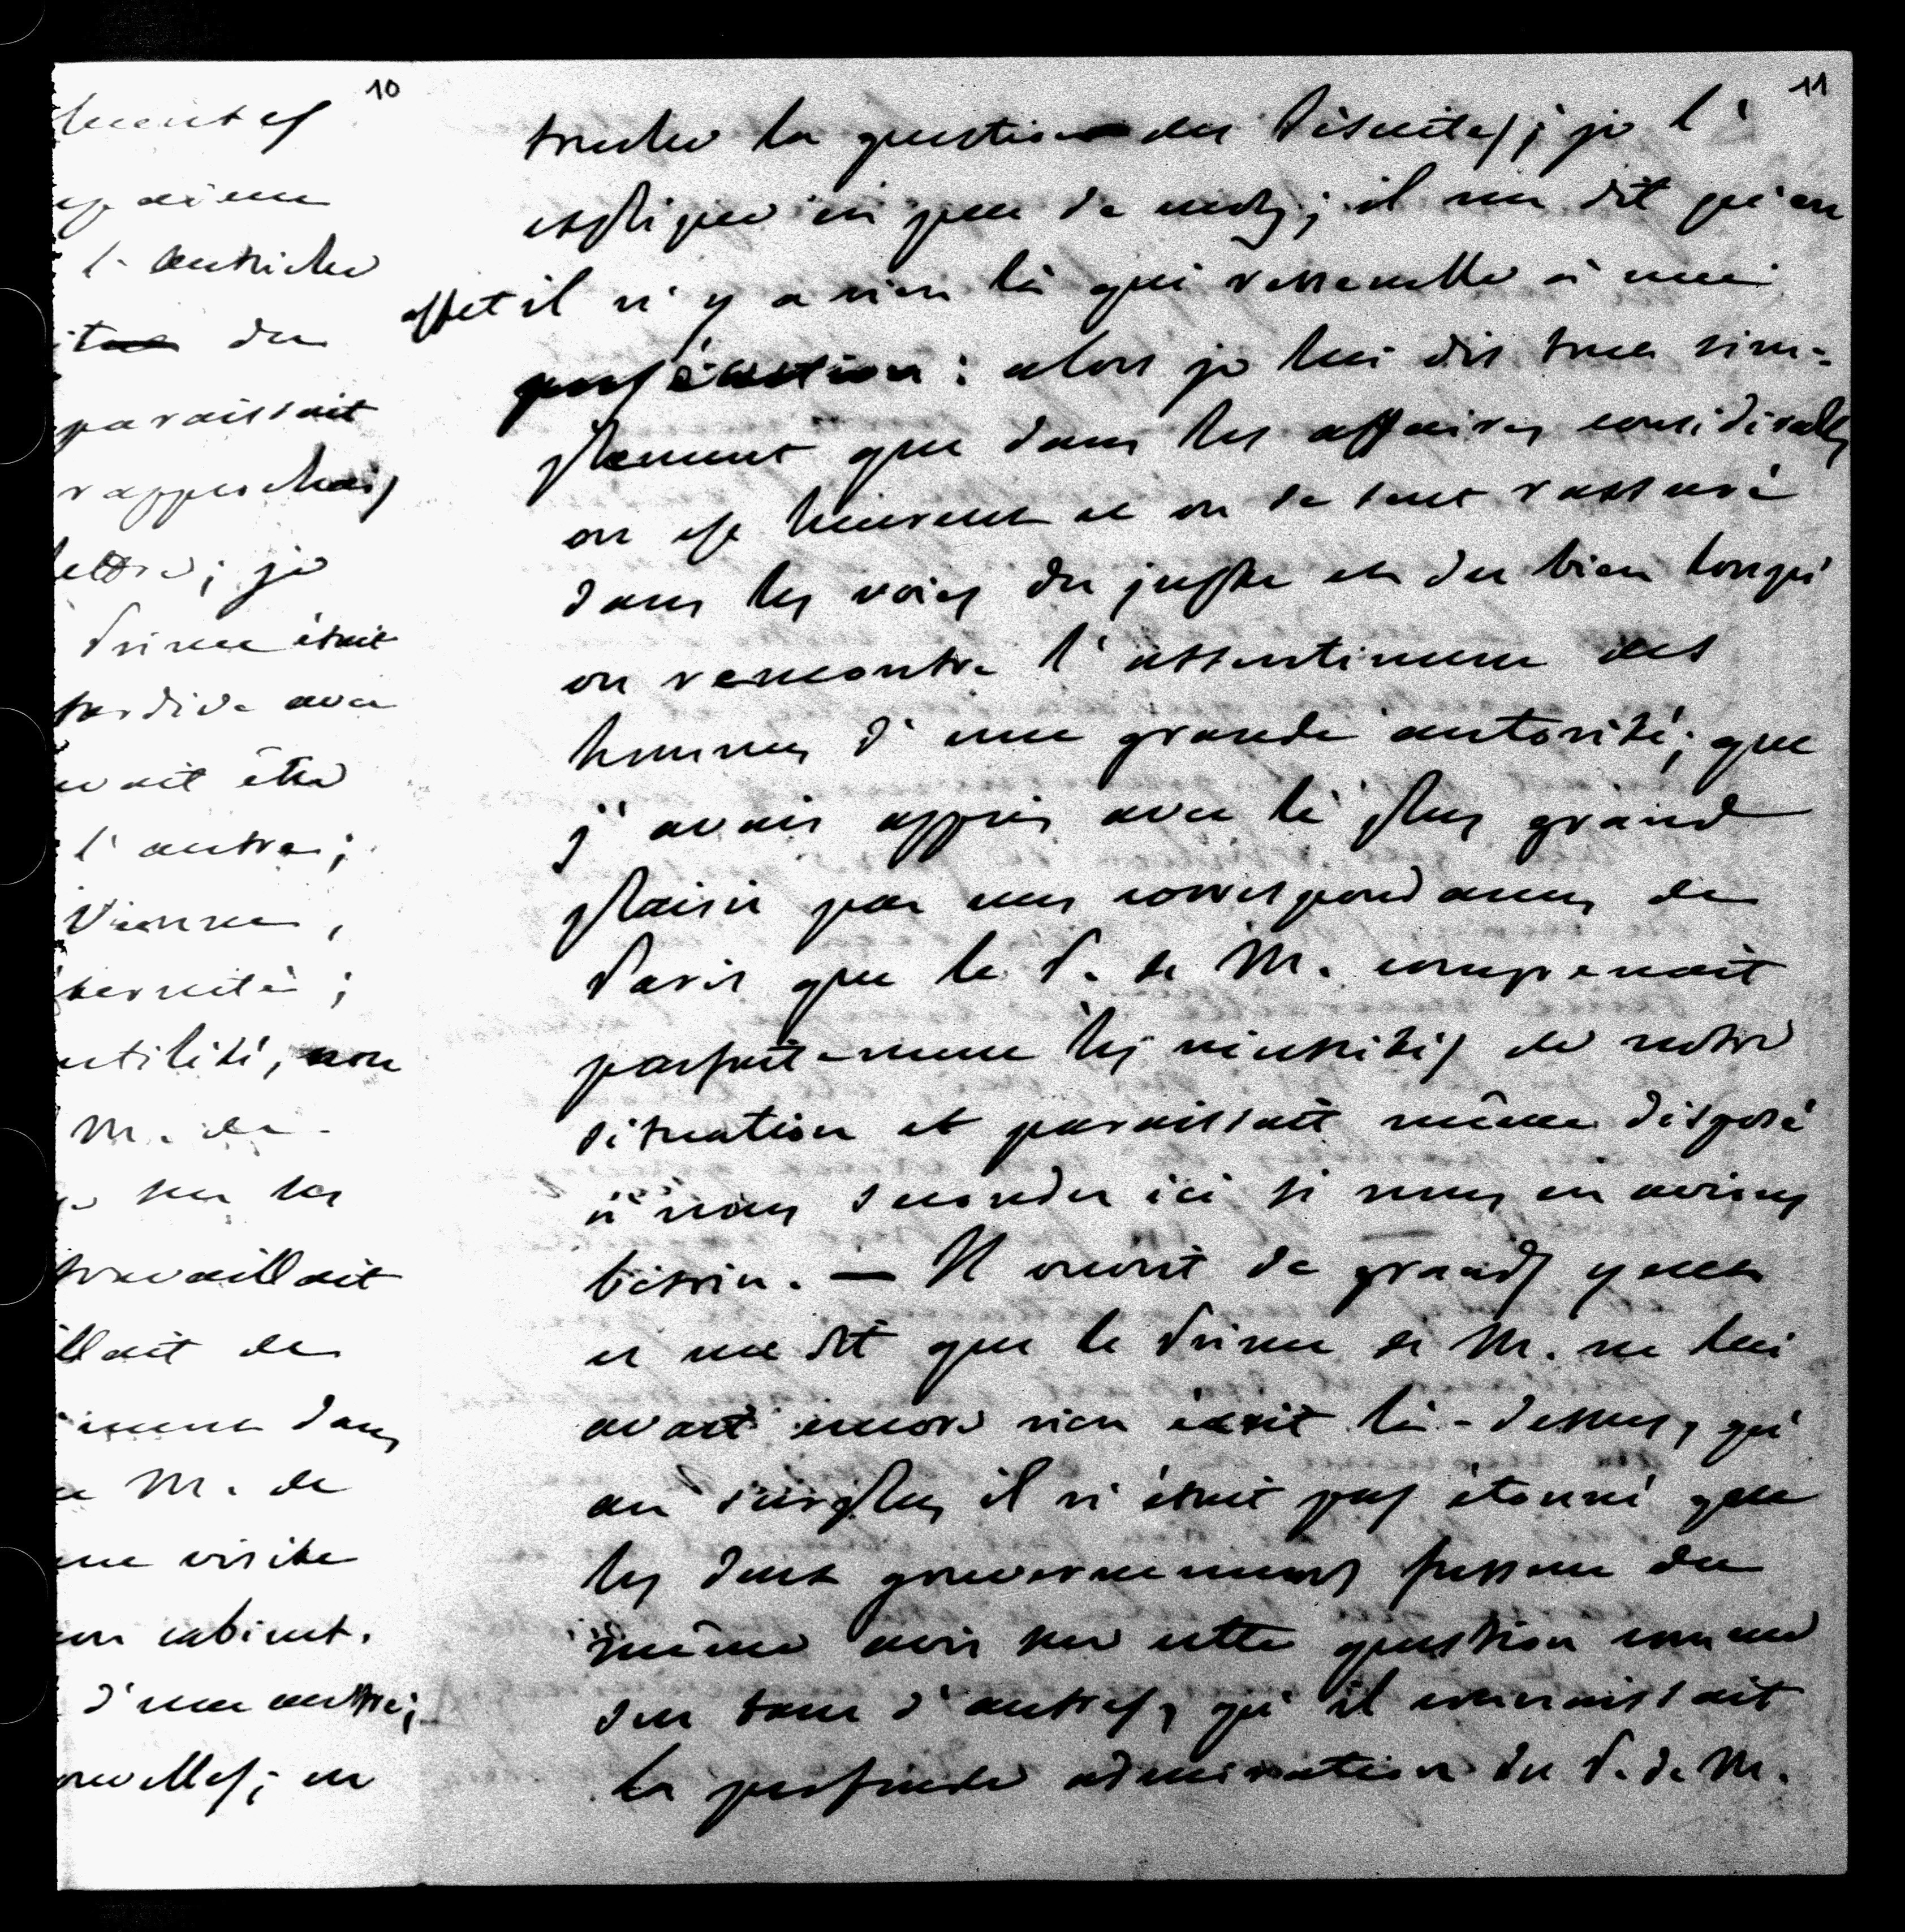 10
mentes
espaism
l'Autriche
du
paraissait
rapprochais
lettre; je
Prince était
tardive avec
uvait être
l'autre;
Vienne,
éternité;
utilité, non
M. de
sur les
travaillait
llait de
iment dans
M. de
une visite
on cabinet.
d'une autre;
nouvelles; en
11
toucher la question des Jésuites; je l'
explique en peu de mots; il me dit qu'en
effet il n'y a rien là qui ressemble à une
persécution: alors je lui dis tout sim-
plement que dans les affaires considérables
on est heureux et on se sent rassuré
dans les voies du juste et du bien lorsqu'
on rencontre l'assentiment des
hommes d'une grande autorité; que
j'avais appris avec le plus grand
plaisir par mes correspondances de
Paris que le P. de M. comprenait
parfaitement les nécessités de notre
situation et paraissait même disposé
à nous seconder ici si nous en avions
besoin. — Il ouvrit de grands yeux
et me dit que le Prince de M. ne lui
avait encore rien écrit là-dessus, qu'
au surplus il n'était pas étonné que
les deux gouvernements fussent du
même avis sur cette question comme
sur tant d'autres, qu'il connaissait
la profonde admiration du P. de M.